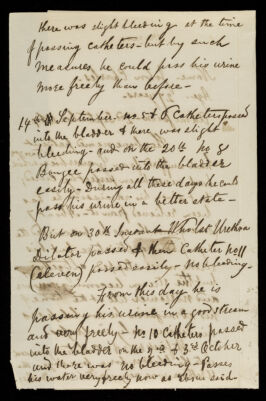 there was slight bleeding at the time
of passing catheters - but by such
measures he could pass his urine
more freely than before -
14th September. No 5 & 6 Catheters passed
into the bladder & there was slight
bleeding - and on the 20th No 8
Bougee passed into the bladder
easily - During all these days he could
pass his urine in a better state -
But on 30th Urethra
Dilator passed & then Catheter No 11
(eleven) passed easily - no bleeding -
From this day he is
passing his urine in a good stream
and very freely - No 10 Catheters passed
into the bladder on the & 3rd October
and there was no bleeding - Passes
his water very freely now as above said